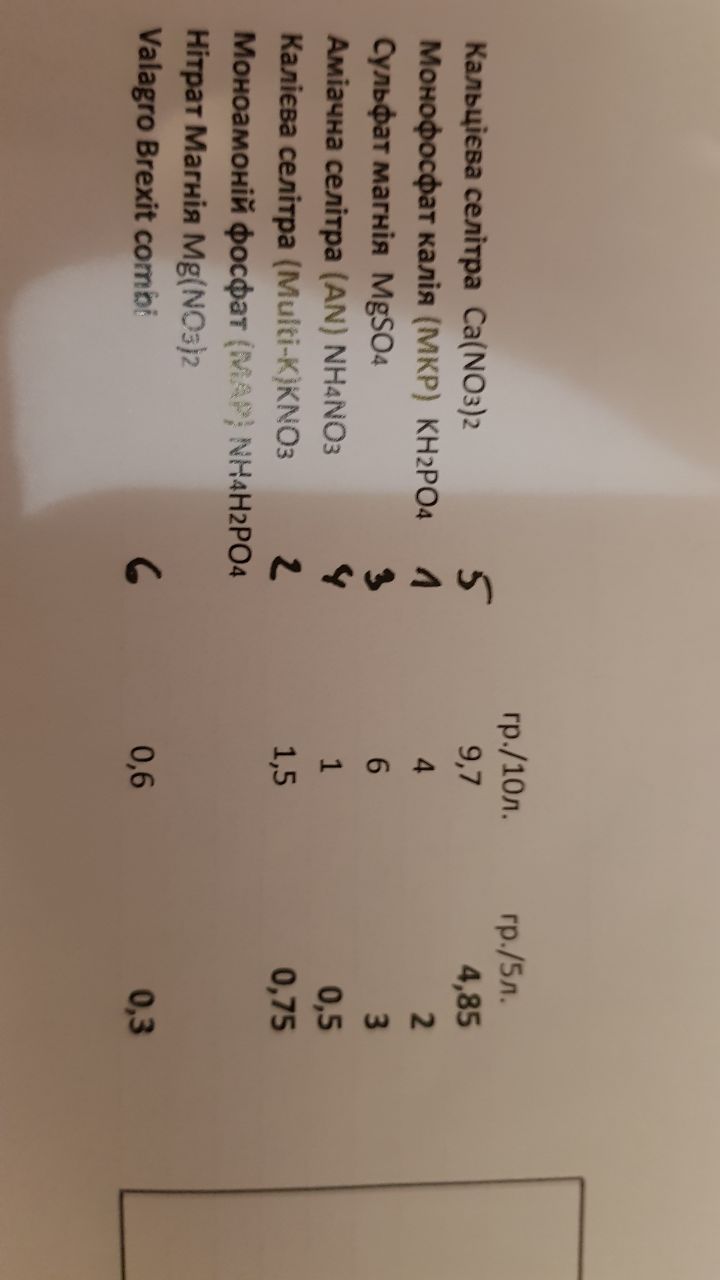 гр./10л. гр./5л.
Кальцієва селітра Ca(NO3)2 5 9,7 4,85
Монофосфат калія (MKP) KH2PO4 1 4 2
Сульфат магнія MgSO4 3 6 3
Аміачна селітра (AN) NH4NO3 4 1 0,5
Калієва селітра (Multi-K)KNO3 2 1,5 0,75
Моноамоній фосфат (MAP) NH4H2PO4
Нітрат Магнія Mg(NO3)2
Valagro Brexit combi 6 0,6 0,3